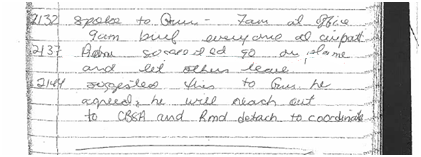 2132 spoke to Gun - 7am at office
9am brief everyone at airport
2137 Adam so asked go on plane
and let others leave
2144 suggested this to Gun he
agreed, he will reach out
to CBSA and Rmd detach to coordinate